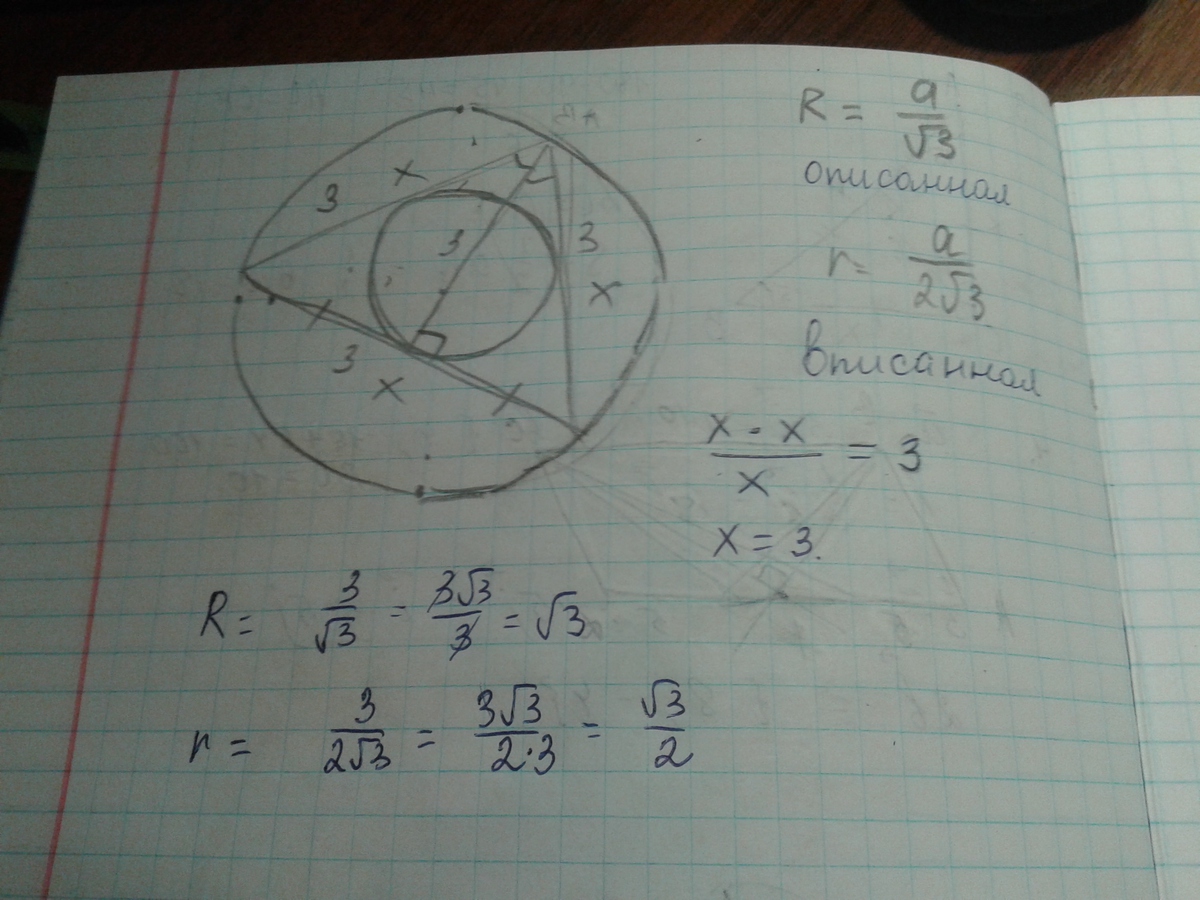 3 x
3
3
x
x
3
x
x
R = a/√3
описанная
r = a/2√3
вписанная
x - x / x = 3
x = 3.
R = 3/√3 = 3√3/3 = √3
r = 3/2√3 = 3√3/2·3 = √3/2